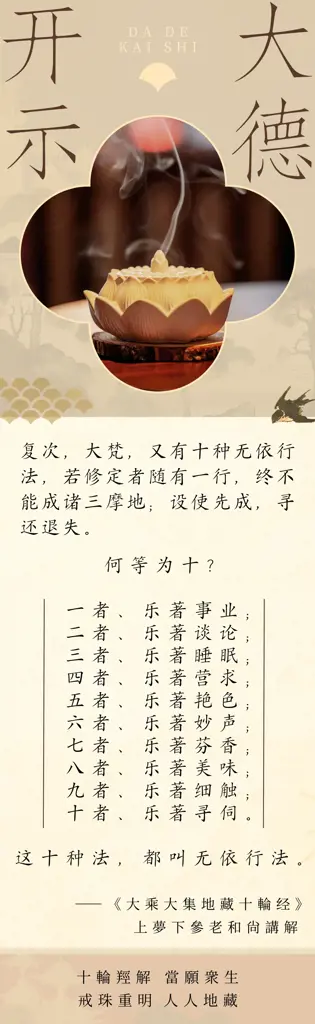 大德
开示
DA DE
KAI SHI
复次，大梵，又有十种无依行
法，若修定者随有一行，终不
能成诸三摩地；设使先成，寻
还退失。
何等为十？
一者、乐著事业；
二者、乐著谈论；
三者、乐著睡眠；
四者、乐著营求；
五者、乐著艳色；
六者、乐著妙声；
七者、乐著芬香；
八者、乐著美味；
九者、乐著细触；
十者、乐著寻伺。
这十种法，都叫无依行法。
——《大乘大集地藏十輪经》
上夢下參老和尚講解
十輪羥解 當願衆生
戒珠重明 人人地藏